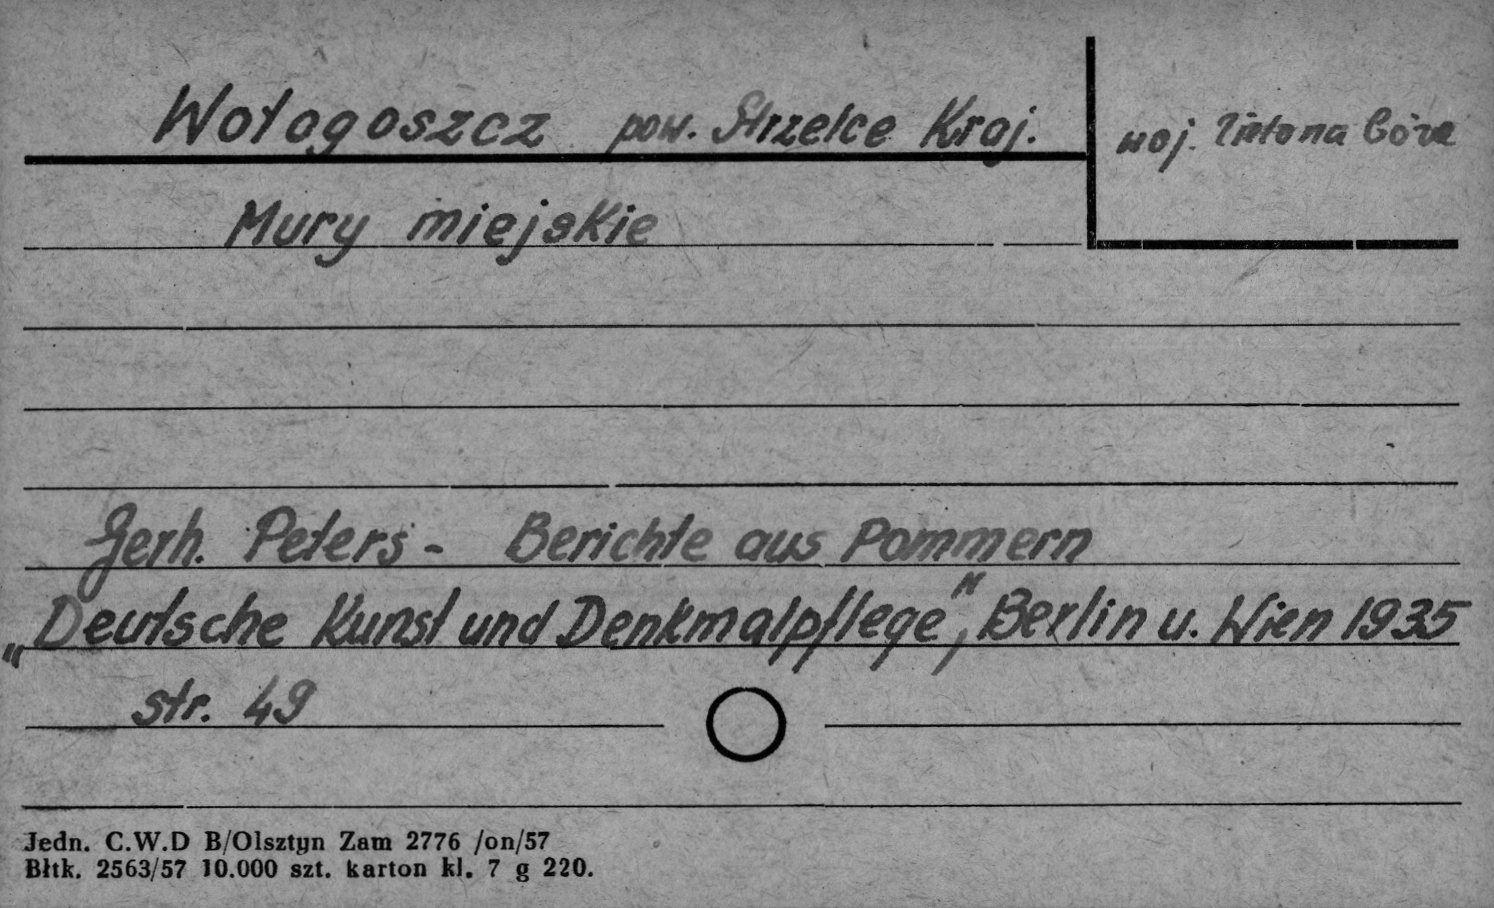 Wołogoszcz pow. Strzelce Kraj.
woj. Zielona Góra
Mury miejskie
Gerh. Peters - Berichte aus Pommern
„Deutsche Kunst und Denkmalpflege", Berlin u. Wien 1935
str. 49
Jedn. C.W.D B/Olsztyn Zam 2776 /on/57
Błtk. 2563/57 10.000 szt. karton kl. 7 g 220.